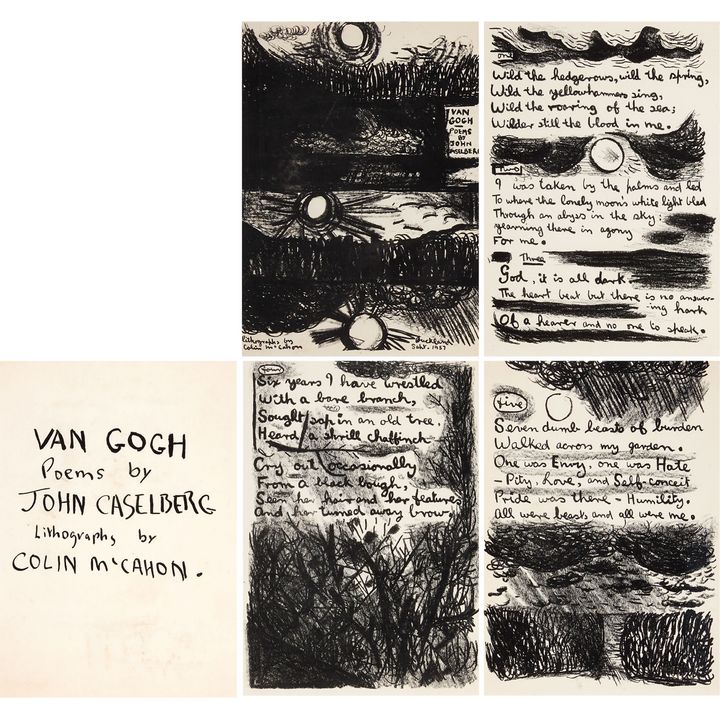 VAN
GOGH
POEMS
BY
JOHN
CASELBERG
Lithographs by
Colin McCahon
Auckland
Sept. 1957
One
Wild the hedgerows, wild the spring,
Wild the yellowhammers sing,
Wild the roaring of the sea;
Wilder still the blood in me.
Two
I was taken by the palms and led
To where the lonely moon's white light bled
Through an abyss in the sky:
yearning there in agony
For me.
Three
God, it is all dark.
The heart beat but there is no answer-
ing hark
Of a hearer and no one to speak.
VAN GOGH
Poems by
JOHN CASELBERG
Lithographs by
COLIN McCAHON.
Four
Six years I have wrestled
With a bare branch,
Sought sap in an old tree,
Heard a shrill chaffinch
Cry out occasionally
From a black bough;
Seen her hair and her features
And her turned away brow.
Five
Seven dumb beasts of burden
Walked across my garden.
One was Envy, one was Hate
- Pity, Love, and Self-conceit
Pride was there - Humility.
All were beasts and all were me.